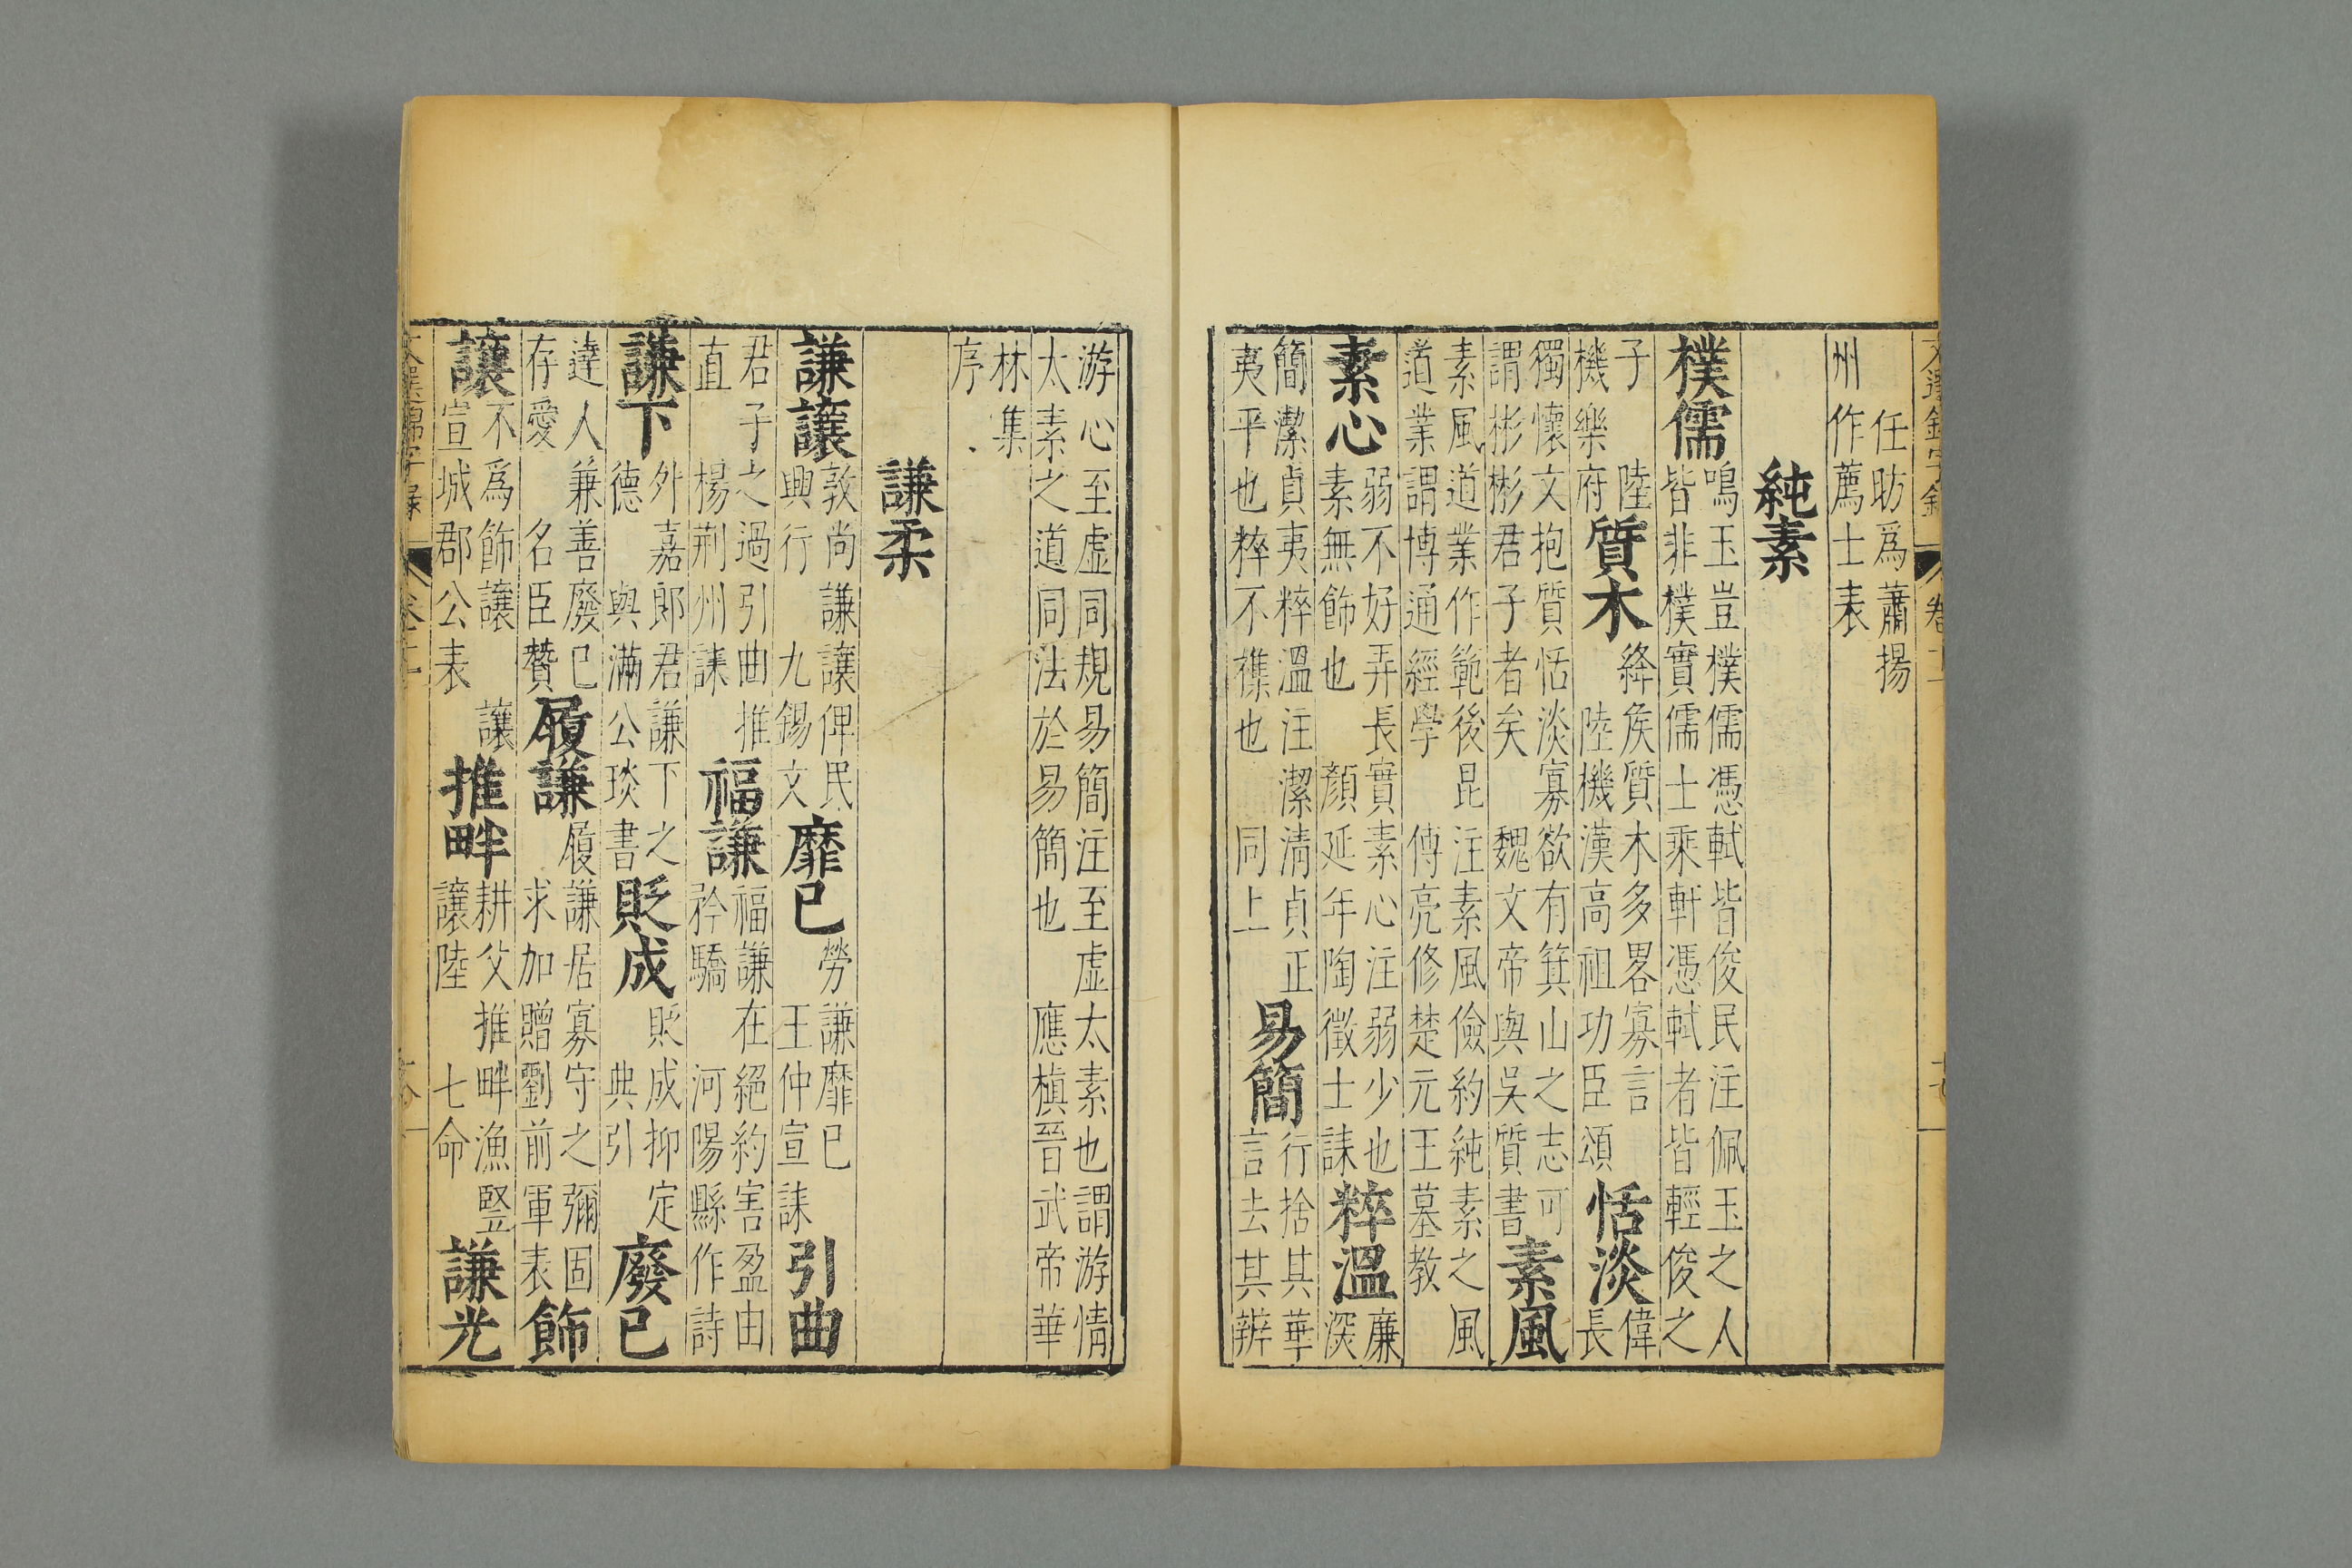 文選錦字錄
任昉爲蕭揚
州作薦士表
純素
樸儒
鳴玉豈樸儒憑軾皆俊民注佩玉之人
皆非樸實儒士乘軒憑軾者皆輕俊之
子　陸
機樂府
質木
絳矦質木多畧寡言
陸機漢高祖功臣頌
恬淡
偉
長
獨懷文抱質恬淡寡欲有箕山之志可
謂彬彬君子者矣　魏文帝與吳質書
素風
素風道業作範後昆　注素風儉約純素之風
道業謂博通經學　傅亮修楚元王墓教
素心
弱不好弄長實素心注弱少也
素無飾也　顏延年陶徵士誄
粹溫
廉
深
簡潔貞夷粹溫注潔清貞正
夷平也粹不襍也　同上
易簡
行捨其華
言去其辨
游心至虛同規易簡注至虛太素也謂游情
太素之道同法於易簡也　應槙晉武帝華
林集
序
謙柔
謙讓
敦尚謙讓俾民
興行　九錫文
靡已
勞謙靡已
王仲宣誄
引曲
君子之過引曲推
直　楊荆州誄
福謙
福謙在絕約害盈由
矜驕　河陽縣作詩
謙下
外嘉郎君謙下之
德　與滿公琰書
貶成
貶成抑定
典引
廢已
達人兼善廢已
存愛　名臣贊
履謙
履謙居寡守之彌固
求加贈劉前軍表
飾
讓
不爲飾讓　讓
宣城郡公表
推畔
耕父推畔漁豎
讓陸　七命
謙光
文選錦字錄